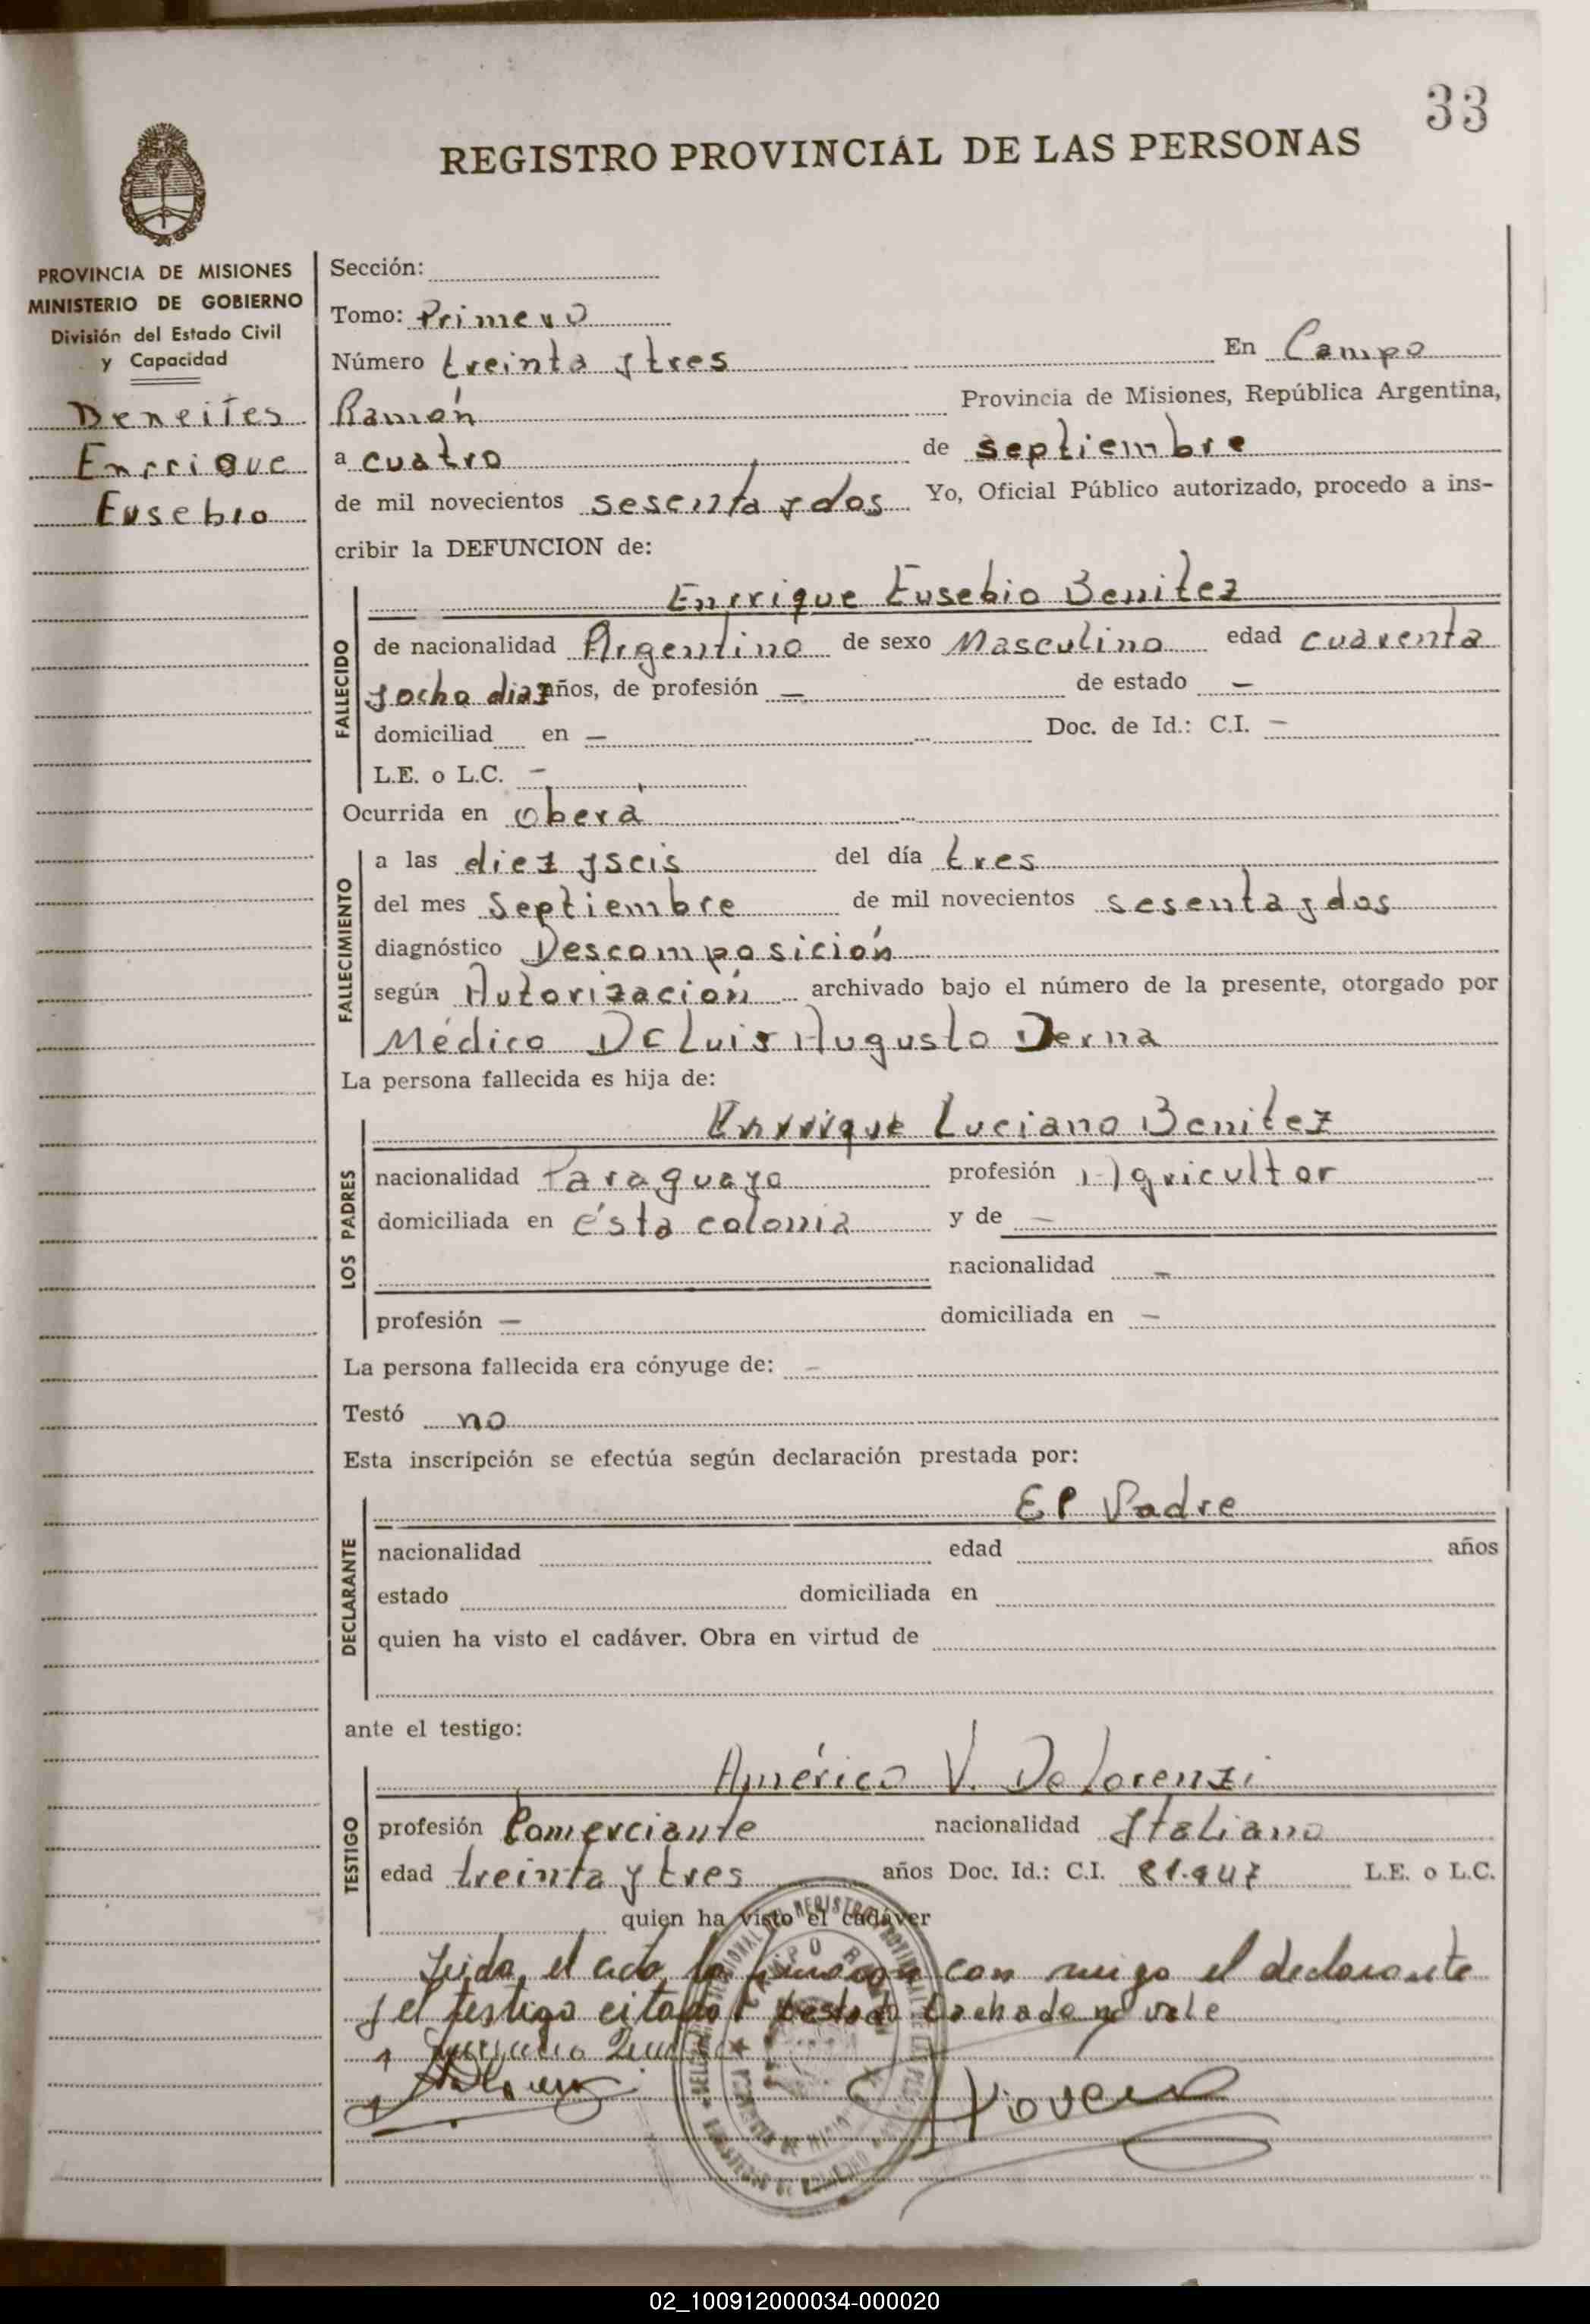 33
REGISTRO PROVINCIAL DE LAS PERSONAS
PROVINCIA DE MISIONES
MINISTERIO DE GOBIERNO
División del Estado Civil
y Capacidad
Beneites
Enrrique
Eusebio
Sección:
Tomo: Primero
Número treinta y tres En Campo
Ramón Provincia de Misiones, República Argentina,
a cuatro de septiembre
de mil novecientos sesenta y dos Yo, Oficial Público autorizado, procedo a ins-
cribir la DEFUNCION de:
FALLECIDO
Enrrique Eusebio Benitez
de nacionalidad Argentino de sexo Masculino edad cuarenta
y ocho dias años, de profesión — de estado —
domiciliad en — Doc. de Id.: C.I. —
L.E. o L.C. —
Ocurrida en oberá
FALLECIMIENTO
a las diez y seis del día tres
del mes Septiembre de mil novecientos sesenta y dos
diagnóstico Descomposición
según Autorización archivado bajo el número de la presente, otorgado por
Médico Dr Luis Augusto Derna
La persona fallecida es hija de:
LOS PADRES
Enrrique Luciano Benitez
nacionalidad Paraguayo profesión Agricultor
domiciliada en ésta colonia y de —
nacionalidad —
profesión — domiciliada en —
La persona fallecida era cónyuge de: —
Testó no
Esta inscripción se efectúa según declaración prestada por:
DECLARANTE
El Padre
nacionalidad edad años
estado domiciliada en
quien ha visto el cadáver. Obra en virtud de
ante el testigo:
TESTIGO
Américo V. De Lorenzi
profesión Comerciante nacionalidad Italiano
edad treinta y tres años Doc. Id.: C.I. 81.947 L.E. o L.C.
quien ha visto el cadáver
Leida el acta la firman con migo el declarante
y el testigo citado testado tachado no vale
02_100912000034-000020